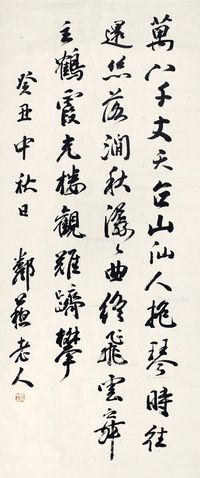 萬八千丈天台山仙人抱琴時往
還絲落澗秋潺々曲終飛雲舞
玄鶴霞光樓觀難躋攀
癸丑中秋日 鄰蘇老人